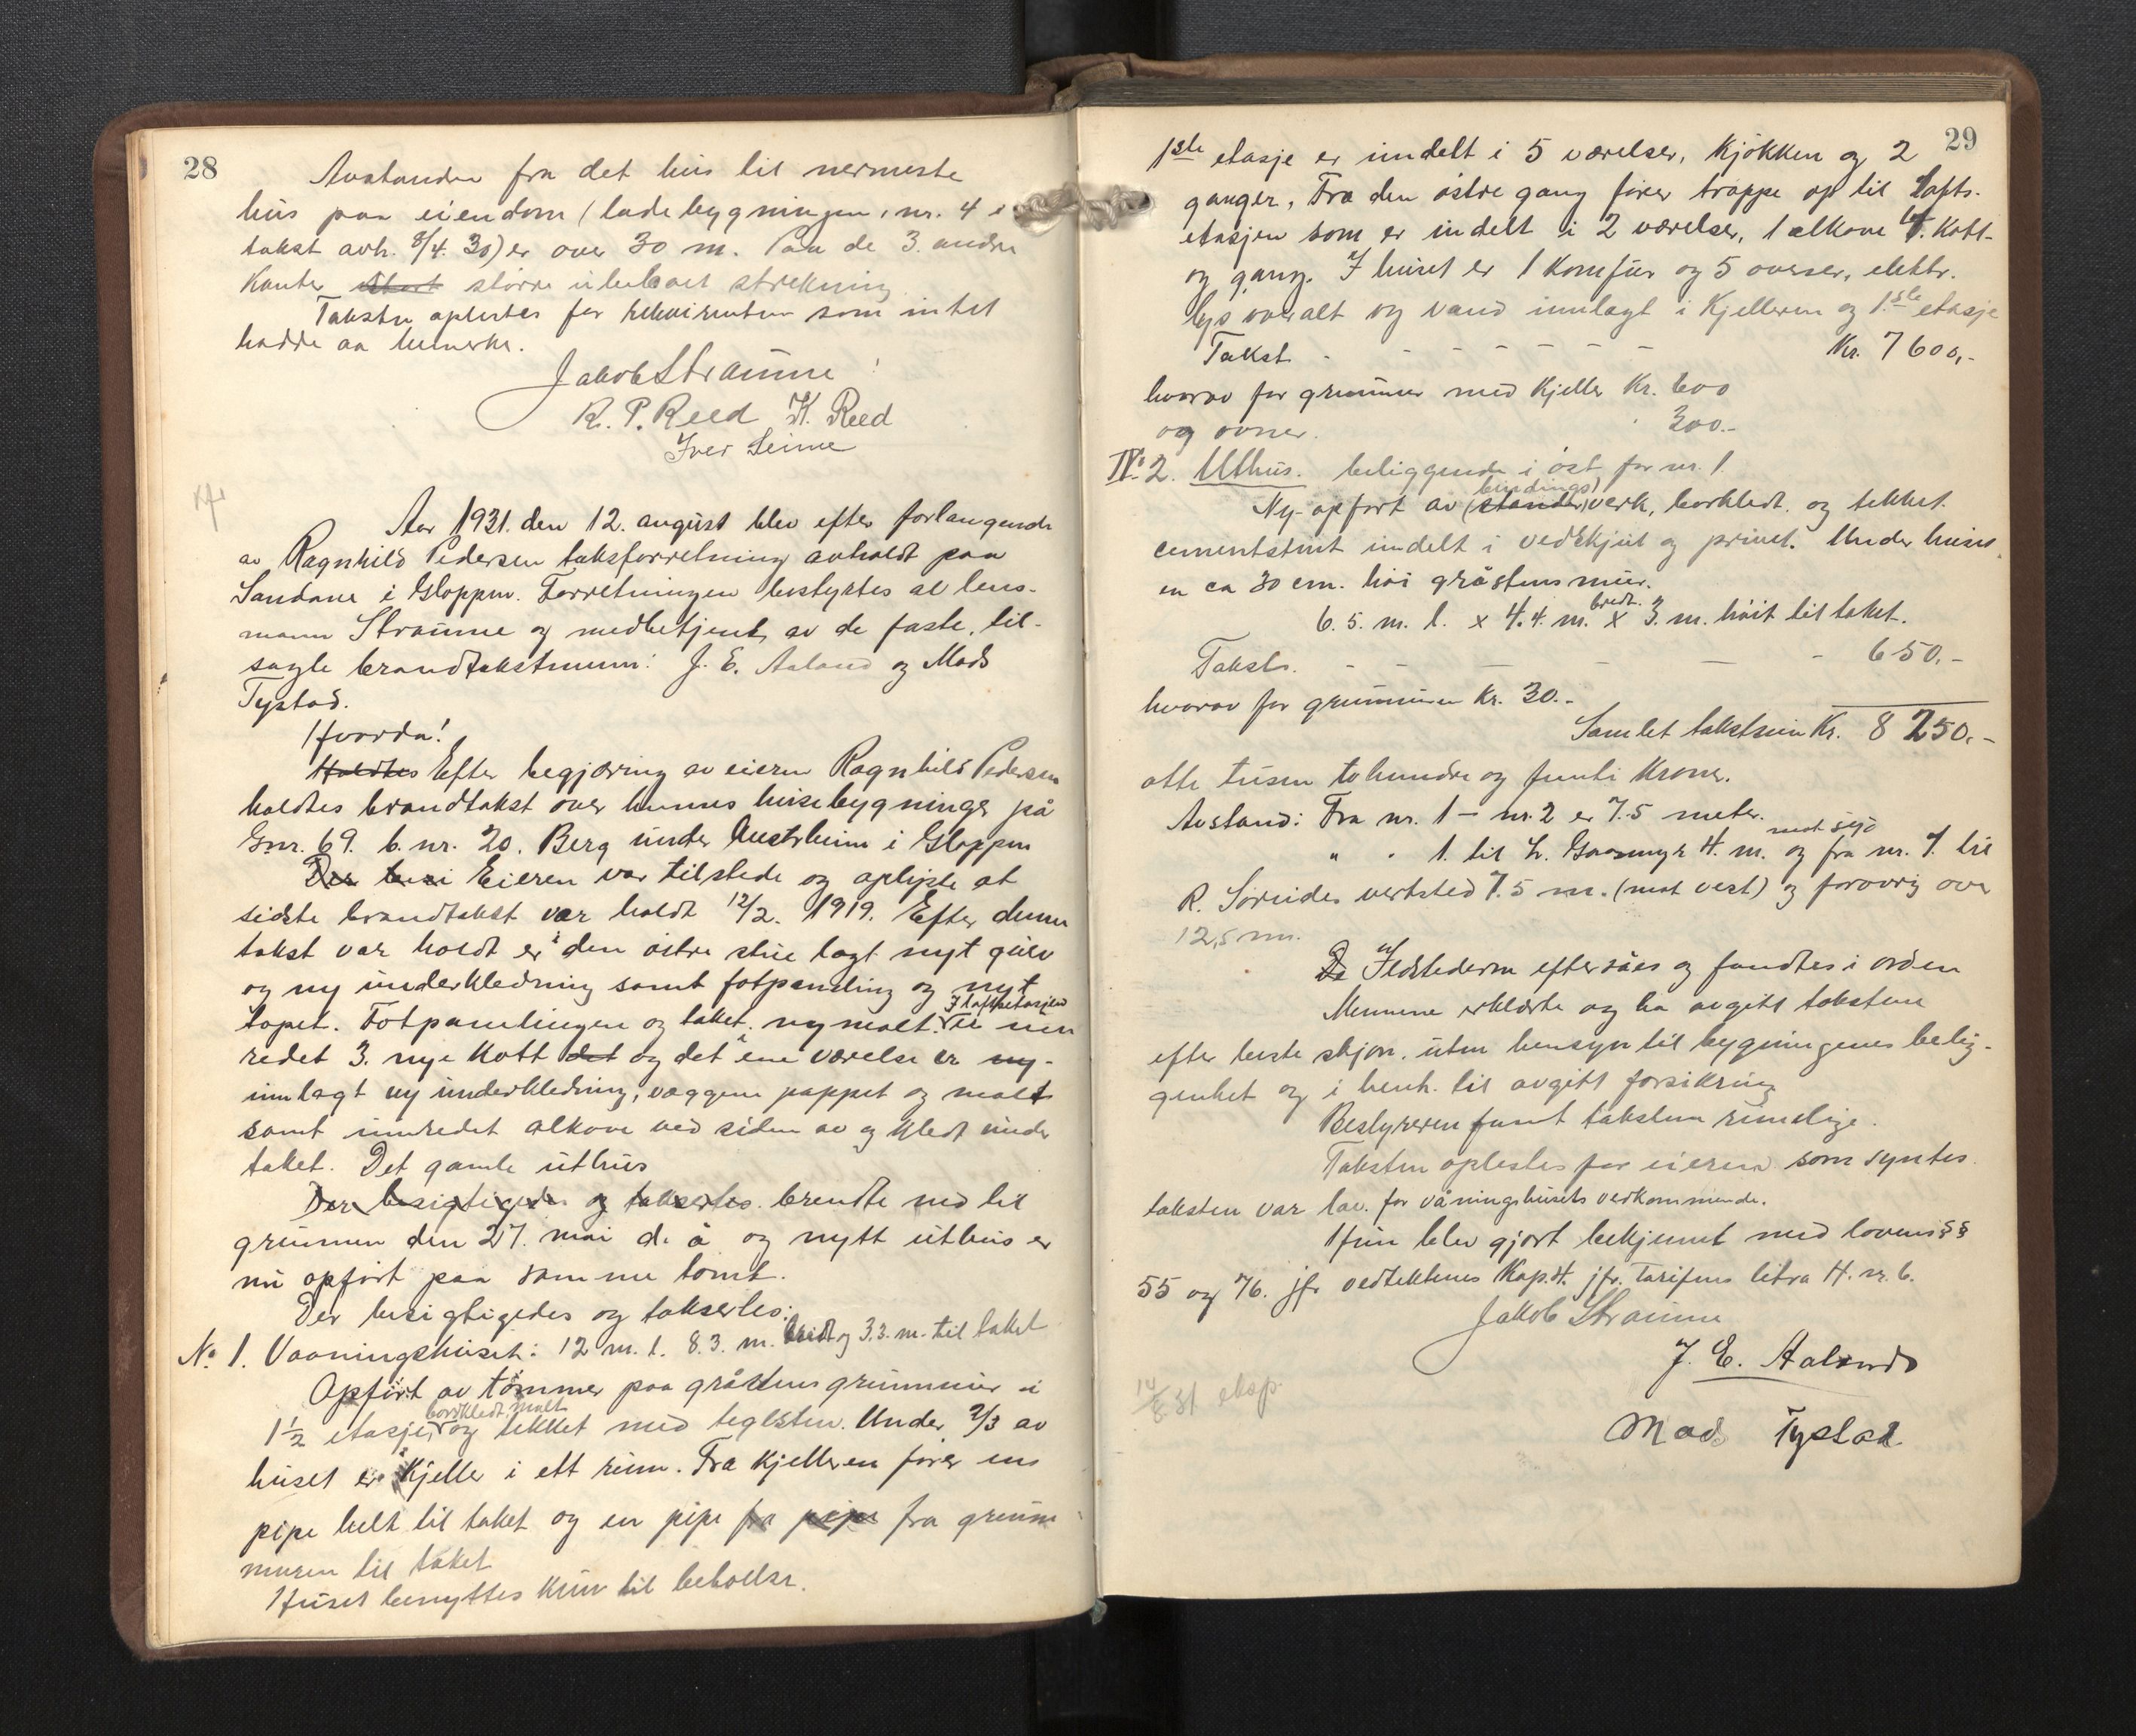 28
Avstanden fra det hus til nermeste
hus paa eiendom (ladebygningen, nr. 4 i
takst avh. 8/4. 30) er over 30 m. Paa de 3. andre
kanter større ubebodt strekning
Taksten oplestes for rekvirenten som intet
hadde aa bemerke.
Jakob Straume
R. P. Reed K. Reed
Iver Seime
Aar 1931. den 12. august blev efter forlangende
av Ragnhild Pedersen taksforretning avholdt paa
Sandane i Gloppen. Forretningen bestyrtes av lens-
mann Straume og medbetjent av de faste, til-
sagte brandtakstmenn: J. E. Aaland og Mads
Tystad.
Hvorda!
Holdtes Efter begjæring av eieren Ragnhild Pedersen
holdtes brandtakst over hennes husebygninger på
Gnr. 69. b. nr. 20. Berg under Austrheim i Gloppen
Eieren var tilstede og oplyste at
sidste brandtakst var holdt 12/2. 1919. Efter denne
takst var holdt er i den østre stue lagt nyt gulv
og ny underkledning samt fotpaneling og nyt
tapet. Fotpanelingen og taket nymalt. I loftsetasjen er inn
redet 3. nye kott det og det ene værelse er ny-
innlagt ny underkledning, væggene pappet og malt
samt innredet alkove ved siden av og kledt under
taket. Det gamle uthus
Der besigtigedes og taksertes. brendte ned til
grunnen den 27. mai d. å og nytt uthus er
nu opført paa samme tomt.
Der besigtigedes og taksertes:
No 1. Vaaningshuset: 12 m. l. 8.3. m. bredt og 3.3. m. til taket
Opført av tømmer paa gråstens grunnmur i
bordkledt, malt
1 1/2 etasje, og tekket med teglsten. Under 2/3 av
huset er kjeller i ett rum. Fra kjelleren fører en
pipe helt til taket og en pipe fra pipe fra grunn
muren til taket
Huset benyttes kun til beboelse.
29
1ste etasje er inndelt i 5 værelser, kjøkken og 2
ganger. Fra den østre gang fører trappe op til lofts-
etasjen som er inndelt i 2 værelser, 1 alkove 4. kott
og gang. I huset er 1 komfur og 5 ovner, elektr.
lys overalt og vand innlagt i kjelleren og 1.ste etasje
Takst - - - - - - - Kr. 7600,-
hvorav for grunnmur med kjeller Kr. 600
og ovner. " 300.-
No 2. Uthus. beliggende i øst for nr. 1.
bindings)
Ny-opført av (stender)verk, bordkledt. og tekket.
cementstent inndelt i vedskjul og privet. Under huset
en ca 30 cm. høi gråstensmur.
6.5. m. l. x 4.4. m. bredt. x 3. m. høit til taket.
Takst. - - - - - - 650,-
hvorav for grunnmur Kr. 30.-
Samlet takstsum Kr. 8250,-
otte tusen tohundre og femti kroner.
Avstand: Fra nr. 1 - nr. 2 er 7.5 meter.
mot sjø
" " 1. til L. Gaasemyr 4. m. og fra nr. 1. til
R. Sørheides verksted 7.5 m. (mot vest) og forøvrig over
12,5 m.
Ildstederne eftersåes og fandtes i orden
Mennene erklærte og ha avgitt taksten
efter beste skjøn, uten hensyn til bygningenes belig-
genhet og i henh. til avgitt forsikring
Bestyreren fant taksten rimelige.
Taksten oplestes for eieren som syntes
taksten var lav. for våningshusets vedkommende.
Hun blev gjort bekjennt med lovens §§
55 og 76. jfr vedtektenes Kap. 4. jfr. Tarifens litra H. nr. 6.
Jakob Straume
J. E. Aaland
31 eksp.
Mads Tystad